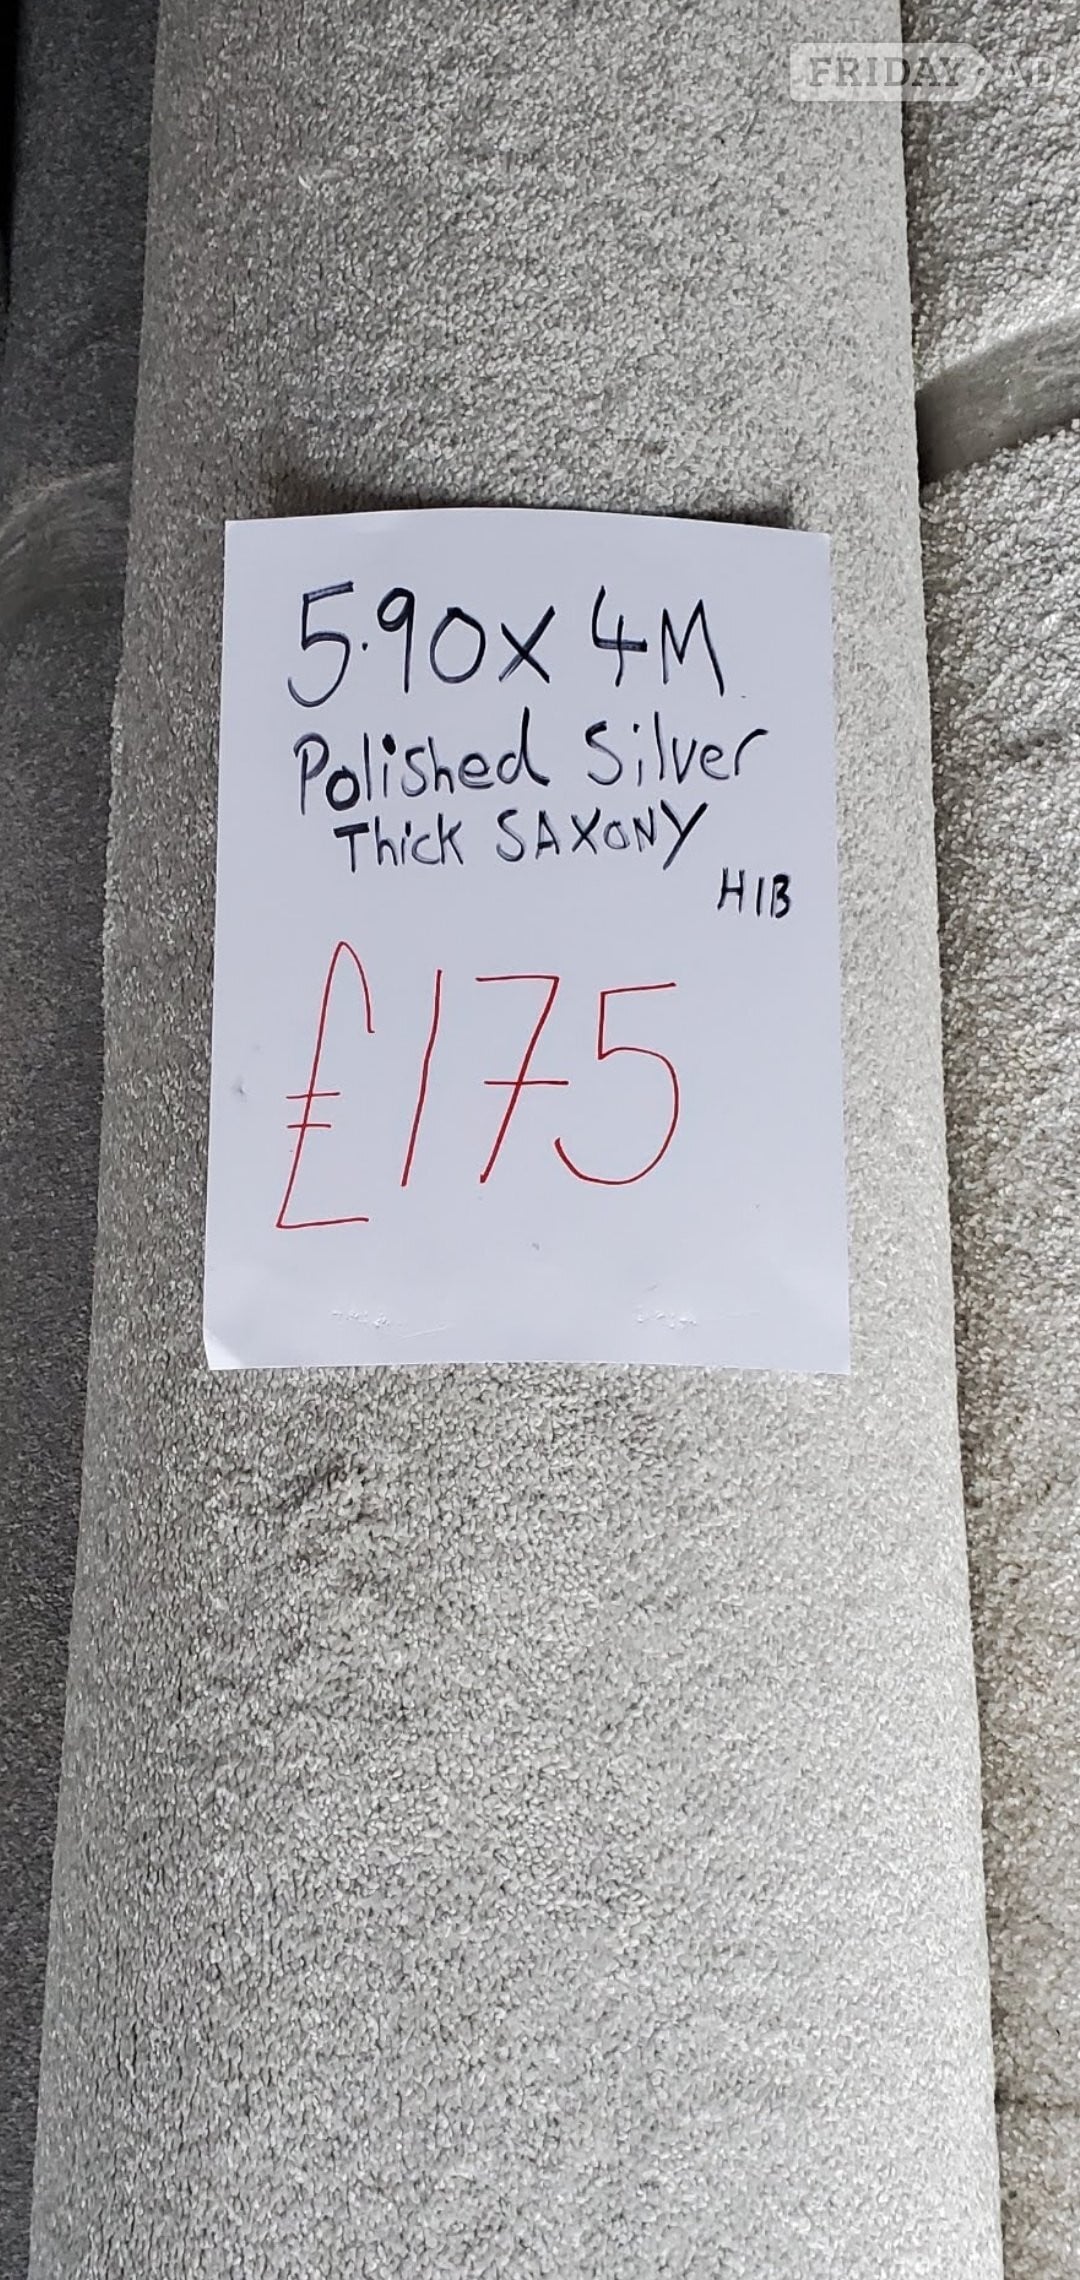 FRIDAY-AD
5.90x 4M
Polished Silver
Thick SAXONY
H1B
£175